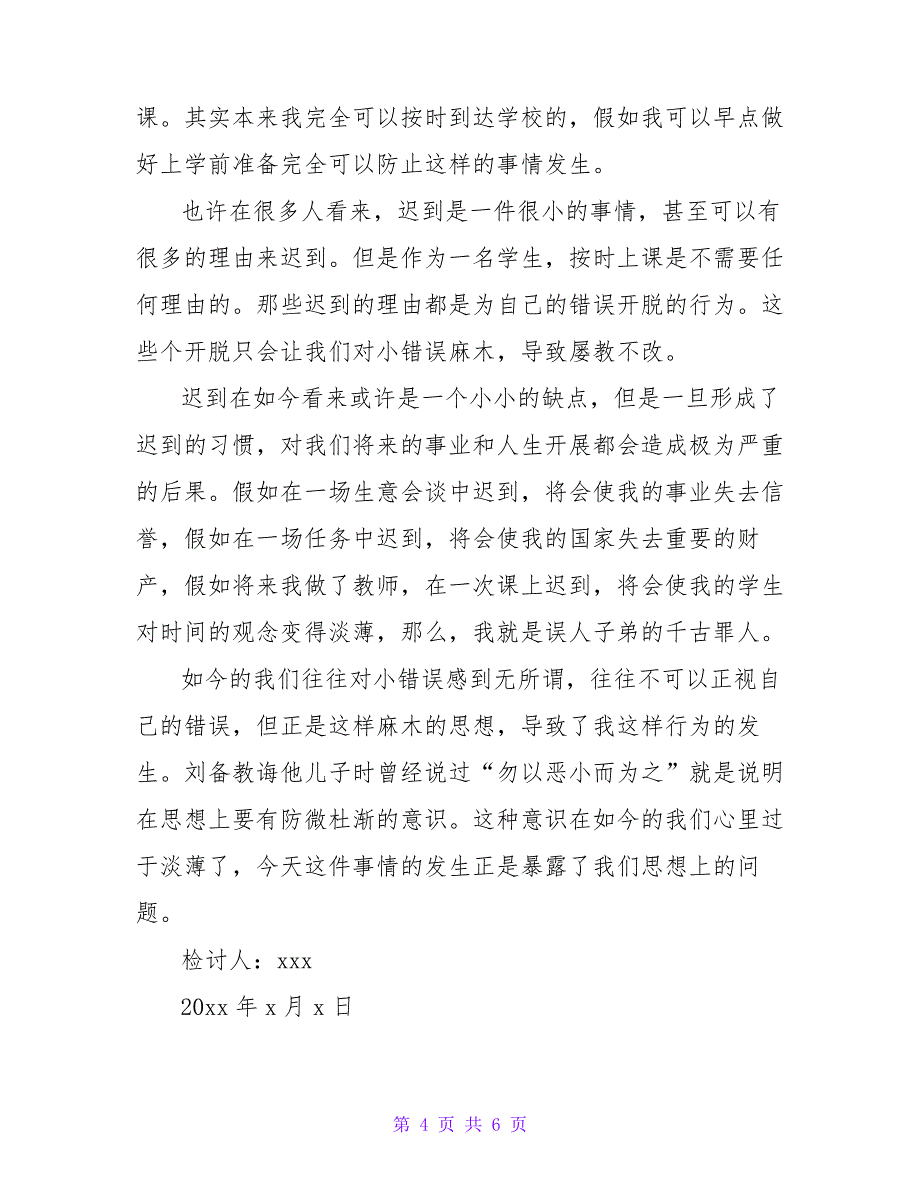 课。其实本来我完全可以按时到达学校的，假如我可以早点做
好上学前准备完全可以防止这样的事情发生。
也许在很多人看来，迟到是一件很小的事情，甚至可以有
很多的理由来迟到。但是作为一名学生，按时上课是不需要任
何理由的。那些迟到的理由都是为自己的错误开脱的行为。这
些个开脱只会让我们对小错误麻木，导致屡教不改。
迟到在如今看来或许是一个小小的缺点，但是一旦形成了
迟到的习惯，对我们将来的事业和人生开展都会造成极为严重
的后果。假如在一场生意会谈中迟到，将会使我的事业失去信
誉，假如在一场任务中迟到，将会使我的国家失去重要的财
产，假如将来我做了教师，在一次课上迟到，将会使我的学生
对时间的观念变得淡薄，那么，我就是误人子弟的千古罪人。
如今的我们往往对小错误感到无所谓，往往不可以正视自
己的错误，但正是这样麻木的思想，导致了我这样行为的发
生。刘备教诲他儿子时曾经说过“勿以恶小而为之”就是说明
在思想上要有防微杜渐的意识。这种意识在如今的我们心里过
于淡薄了，今天这件事情的发生正是暴露了我们思想上的问
题。
检讨人：xxx
20xx 年 x 月 x 日
第 4 页 共 6 页